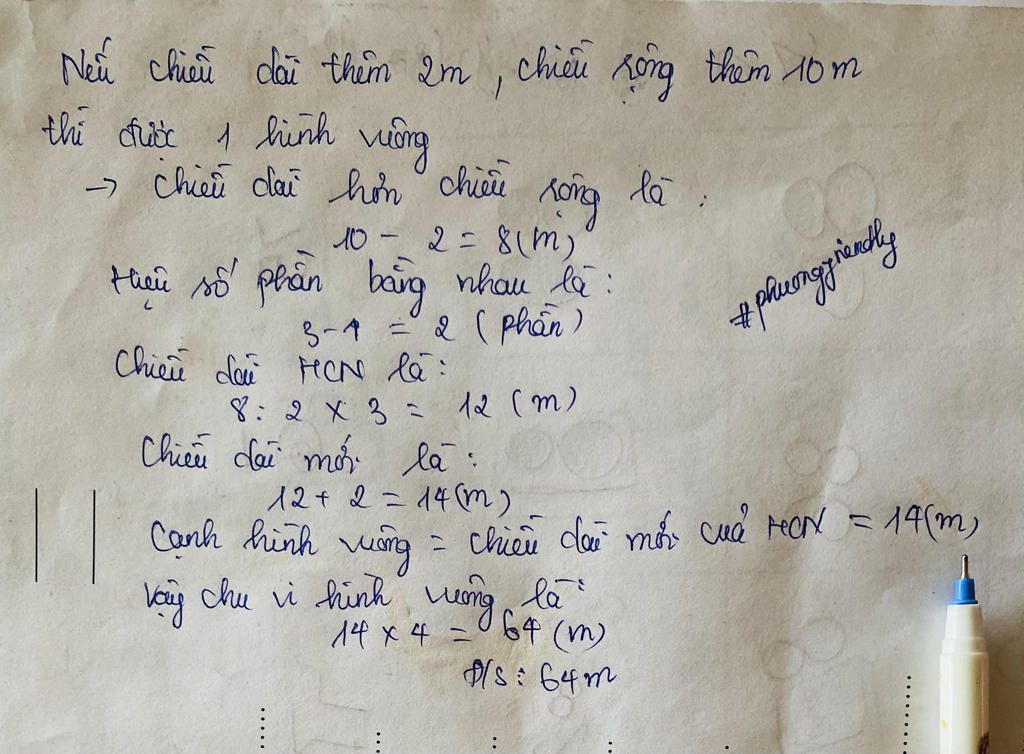 Nếu chiều dài thêm 2m, chiều rộng thêm 10m
thì được 1 hình vuông
→ chiều dài hơn chiều rộng là:
10 - 2 = 8 (m)
Hiệu số phần bằng nhau là:
#phuongfriendly
3 - 1 = 2 (phần)
Chiều dài HCN là:
8 : 2 x 3 = 12 (m)
Chiều dài mới là:
12 + 2 = 14 (m)
Cạnh hình vuông = chiều dài mới của HCN = 14 (m)
Vậy chu vi hình vuông là:
14 x 4 = 64 (m)
Đ/S: 64m